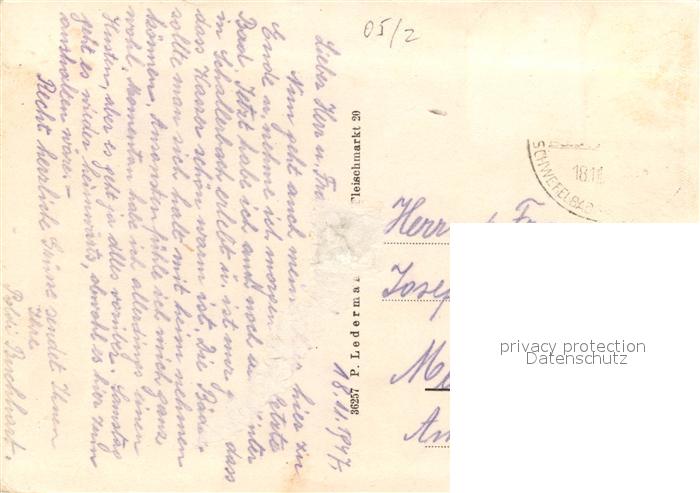 05/2
18.11.1947.
Lieber Herr u. Fra
Nun geht auch mein hier zu
Ende u. nehme ich morgen letzte
Bad. Jetzt habe ich auch noch den inter
in Schallerbach erlebt u. ist nur g dass
das Wasser schön warm ist. Die Bäder
sollte man sich halt mit heim nehmen
können. Ansonsten fühle ich mich ganz
wohl, momentan habe ich allerdings einen
Husten, aber es geht ja alles vorüber. Samstag
geht es wieder heimwärts, obwohl es hier zum
aushalten wäre. –
Recht herzliche Grüsse sendet Ihnen
Ihre
Buchhart.
36257 P. Lederma Fleischmarkt 20
SCHWEFELBA
18.11
Herr Fr
Josef
M
An
privacy protection
Datenschutz